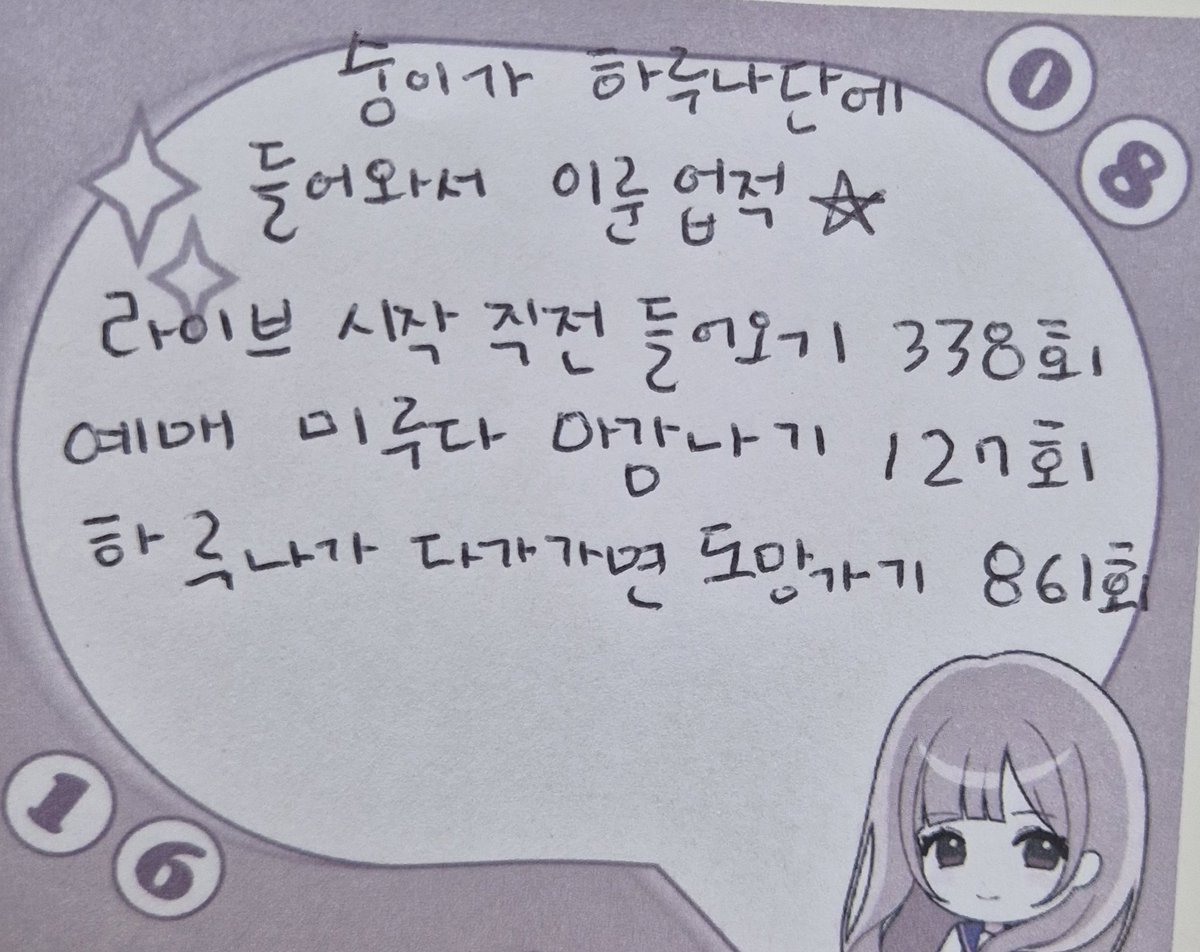 숭이가 하루나단에
들어와서 이룬 업적 ☆
라이브 시작 직전 들어오기 338회
예매 미루다 마감나기 127회
하루나가 다가가면 도망가기 861회
0
8
1
6